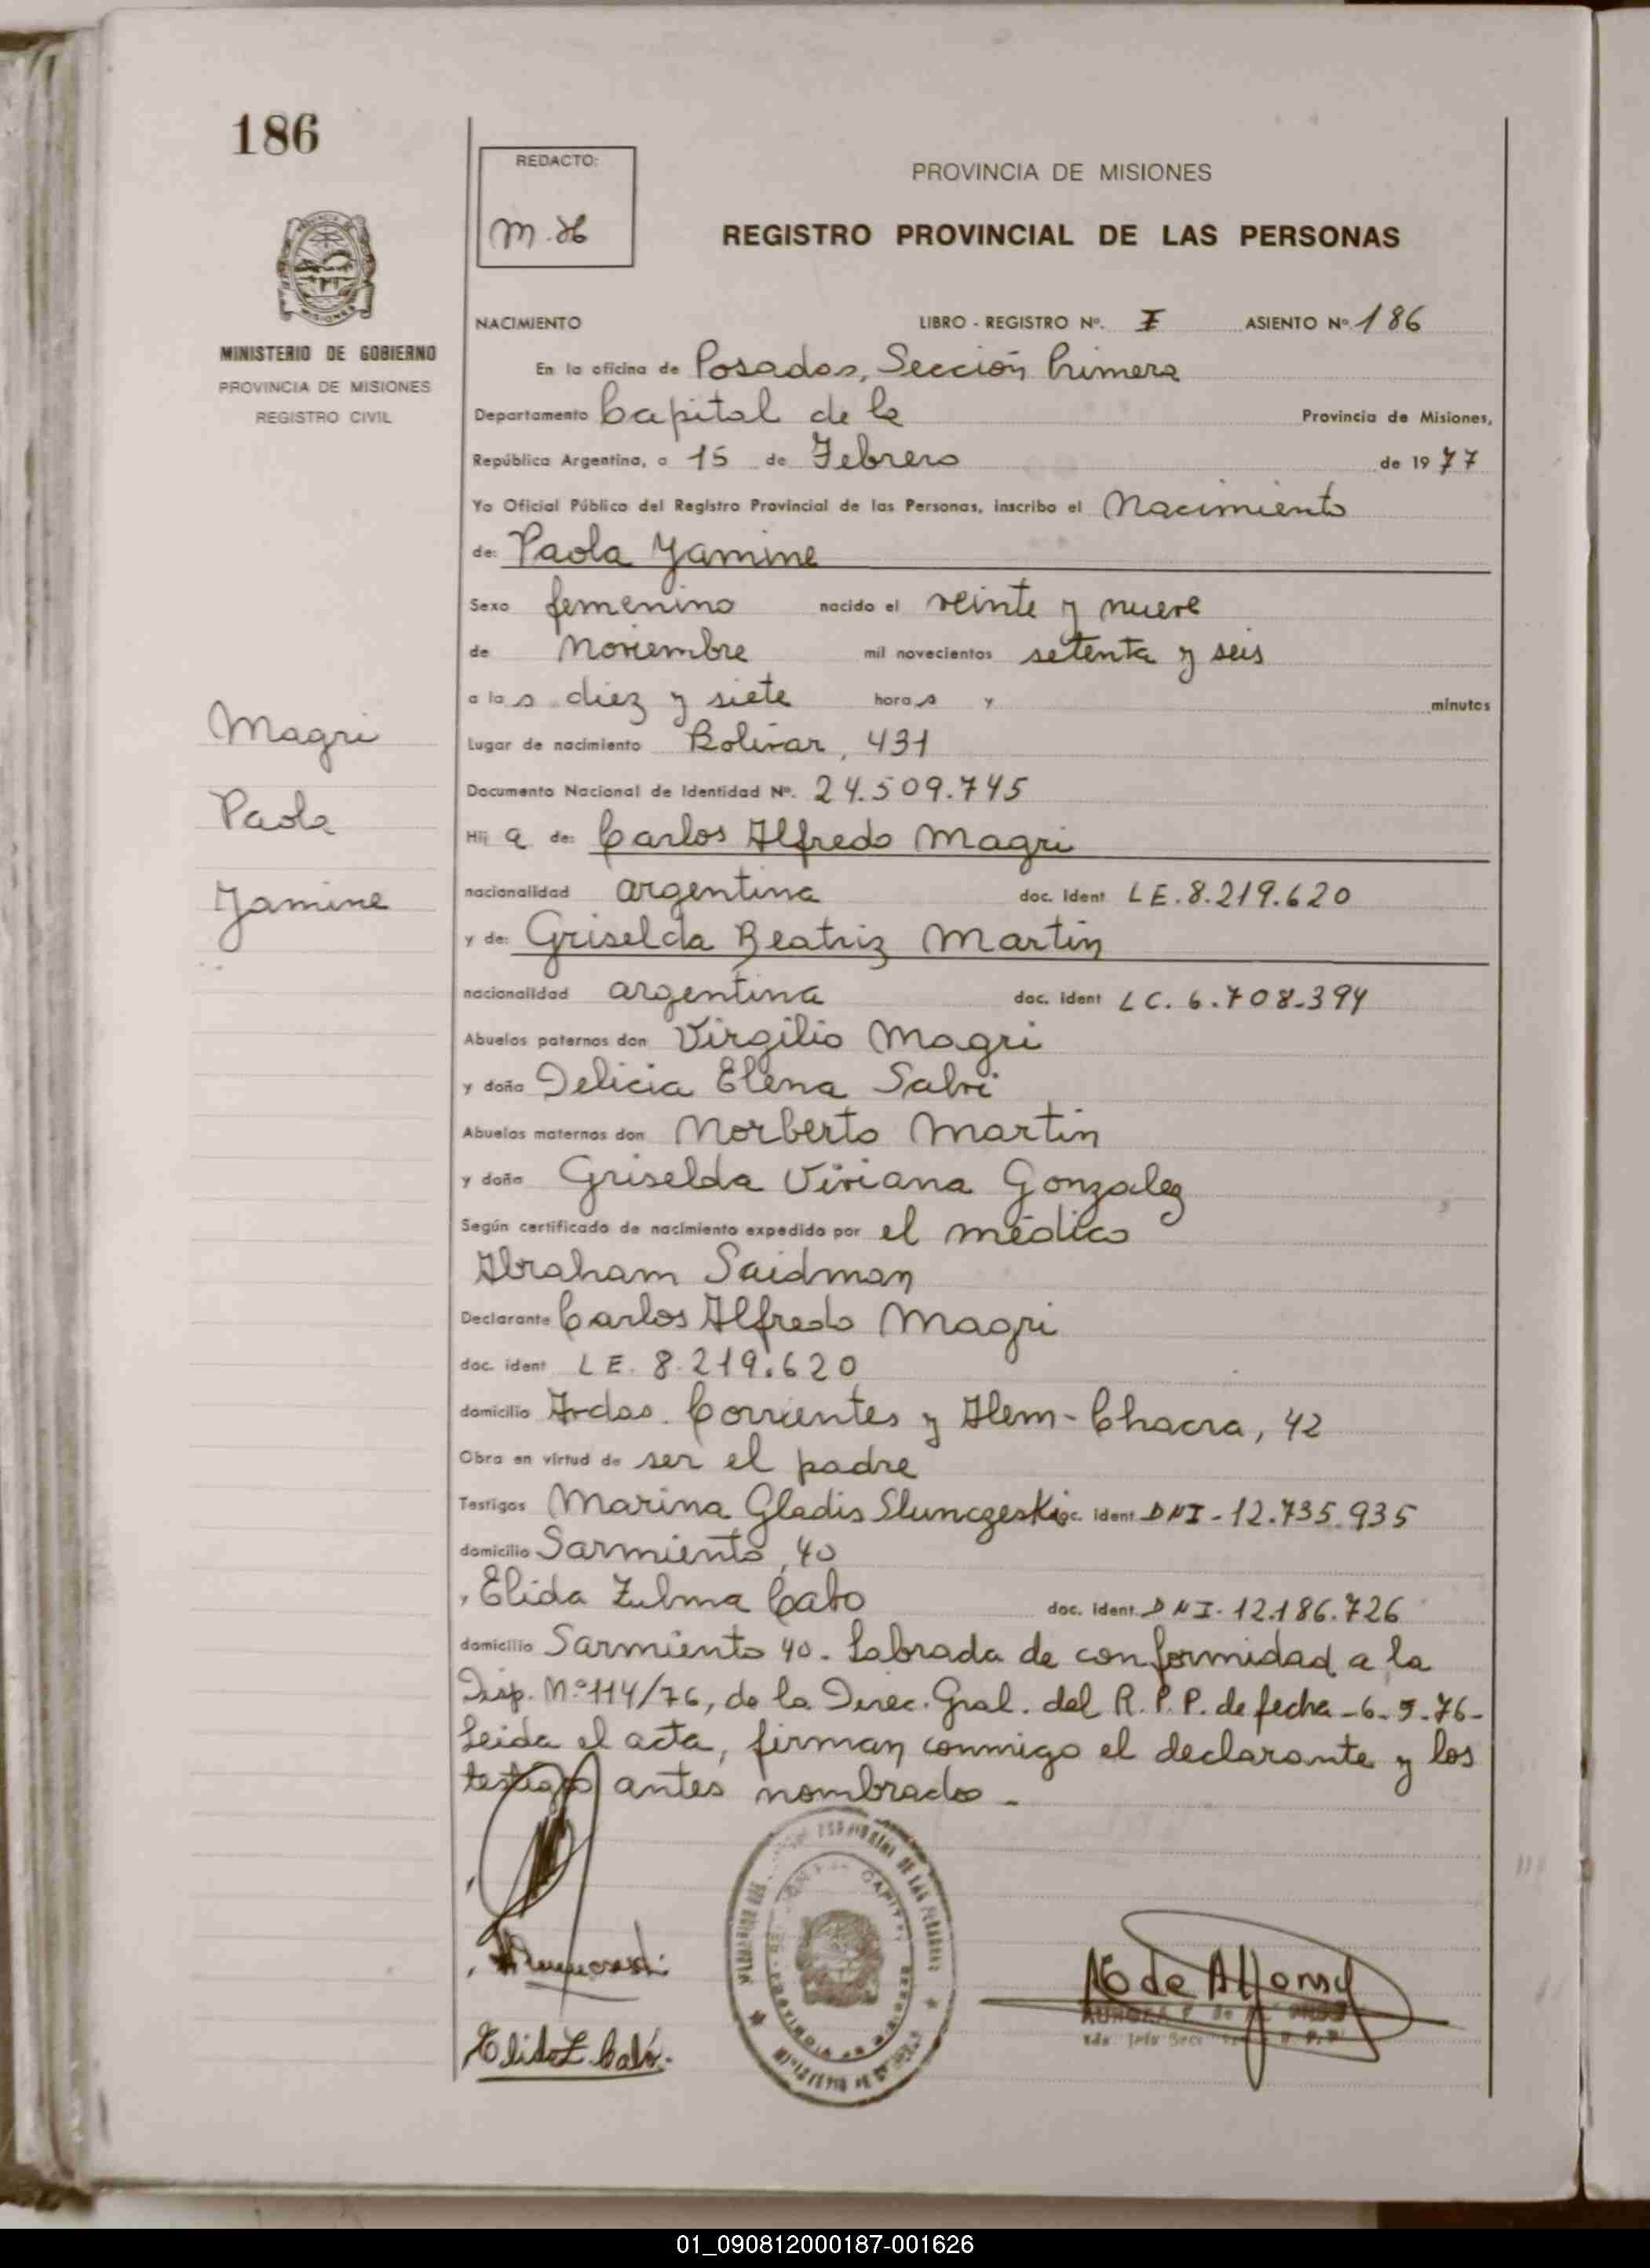 186
REDACTO:
M. H
PROVINCIA DE MISIONES
REGISTRO PROVINCIAL DE LAS PERSONAS
MINISTERIO DE GOBIERNO
PROVINCIA DE MISIONES
REGISTRO CIVIL
NACIMIENTO LIBRO - REGISTRO Nº. I ASIENTO Nº 186
En la oficina de Posadas, Sección Primera
Departamento Capital de la Provincia de Misiones,
República Argentina, a 15 de Febrero de 1977
Yo Oficial Público del Registro Provincial de las Personas, inscribo el Nacimiento
de: Paola Yamine
Sexo femenino nacido el veinte y nueve
de Noviembre mil novecientos setenta y seis
a las diez y siete horas y minutos
Lugar de nacimiento Bolivar, 431
Documento Nacional de Identidad Nº. 24.509.745
Magri
Paola
Yamine
Hija de: Carlos Alfredo Magri
nacionalidad argentina doc. Ident LE. 8.219.620
y de: Griselda Beatriz Martin
nacionalidad argentina doc. Ident LC. 6.708.394
Abuelos paternos don Virgilio Magri
y doña Delicia Elena Salvi
Abuelos maternos don Norberto Martin
y doña Griselda Viviana Gonzalez
Según certificado de nacimiento expedido por el médico
Abraham Saidman
Declarante Carlos Alfredo Magri
doc. ident LE. 8.219.620
domicilio Avdas. Corrientes y Alem - Chacra, 42
Obra en virtud de ser el padre
Testigos Marina Gladis Slunczeski doc. ident DNI - 12.735.935
domicilio Sarmiento, 40
, Elida Zulma Cabo doc. ident. DNI. 12.186.726
domicilio Sarmiento 40. Labrada de conformidad a la
Disp. Nº 114/76, de la Direc. Gral. del R. P. P. de fecha - 6-5-76-
Leida el acta, firman conmigo el declarante y los
testigos antes nombrados -
Elida Z. Cabo.
01_090812000187-001626